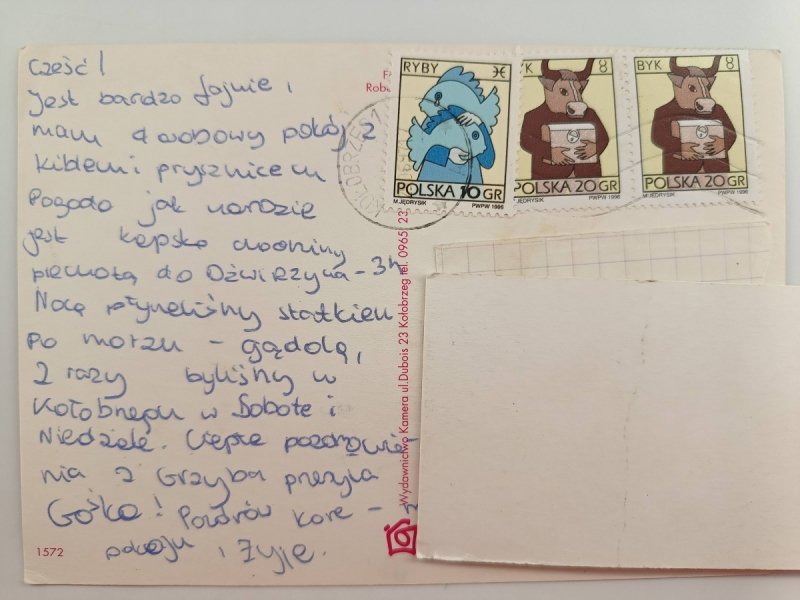 Cześć!
Jest bardzo fajnie i
mam 4 osobowy pokój z
kiblem i prysznicem
Pogoda jak narazie
jest kiepska chodzimy
piechotą do Dźwirzyna - 3h
Nocą płyneliśmy statkiem
po morzu - gądolą,
2 razy byliśmy w
Kołobrzegu w Sobote i
Niedziele. Ciepłe pozdrowie-
nia z Grzyba przesyła
Gośka! Pozdrów
pokoju i żyje.
1572
RYBY
POLSKA 10 GR
M.JĘDRYSIK PWPW 1996
BYK
POLSKA 20 GR
PWPW 1996
BYK
POLSKA 20 GR
M.JĘDRYSIK PWPW 1996
KOŁOBRZEG 1
Robe
Wydawnictwo Kamera ul.Dubois 23 Kołobrzeg tel. 0965 23